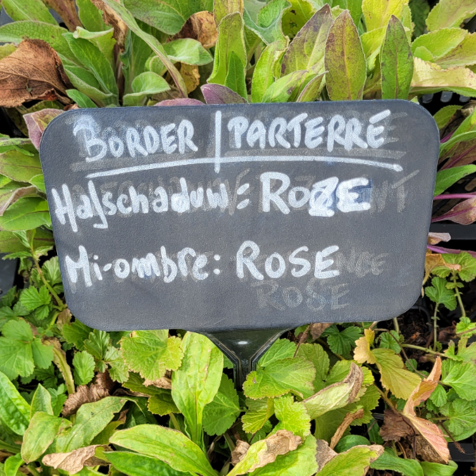 BORDER | PARTERRE
Halfschaduw: ROZE
Mi-ombre: ROSE
ROSE